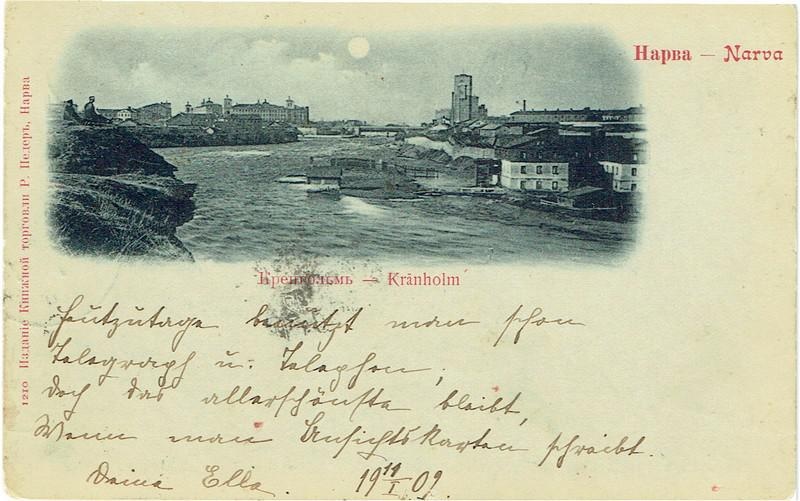 Нарва — Narva
1210 Изданіе Книжной торговли Р. Педеръ, Нарва
Кренгольмъ — Kränholm
Heutzutage benützt man schon
Telegraph u. Telephon,
doch das allerschönste bleibt,
Wenn man Ansichtskarten schreibt.
Deine Ella. 19 11/I 02